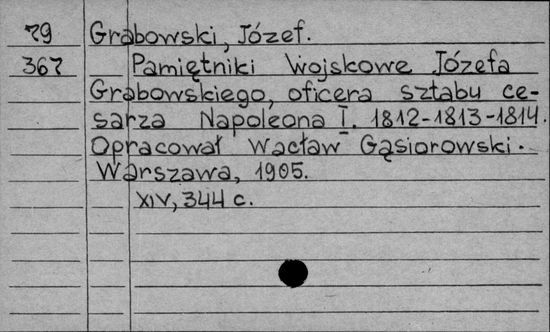 79 Grabowski, Józef.
367 Pamiętniki Wojskowe Józefa
Grabowskiego, oficera sztabu ce-
sarza Napoleona I. 1812-1813-1814.
Opracował Wacław Gąsiorowski.
Warszawa, 1905.
XIV, 344 c.